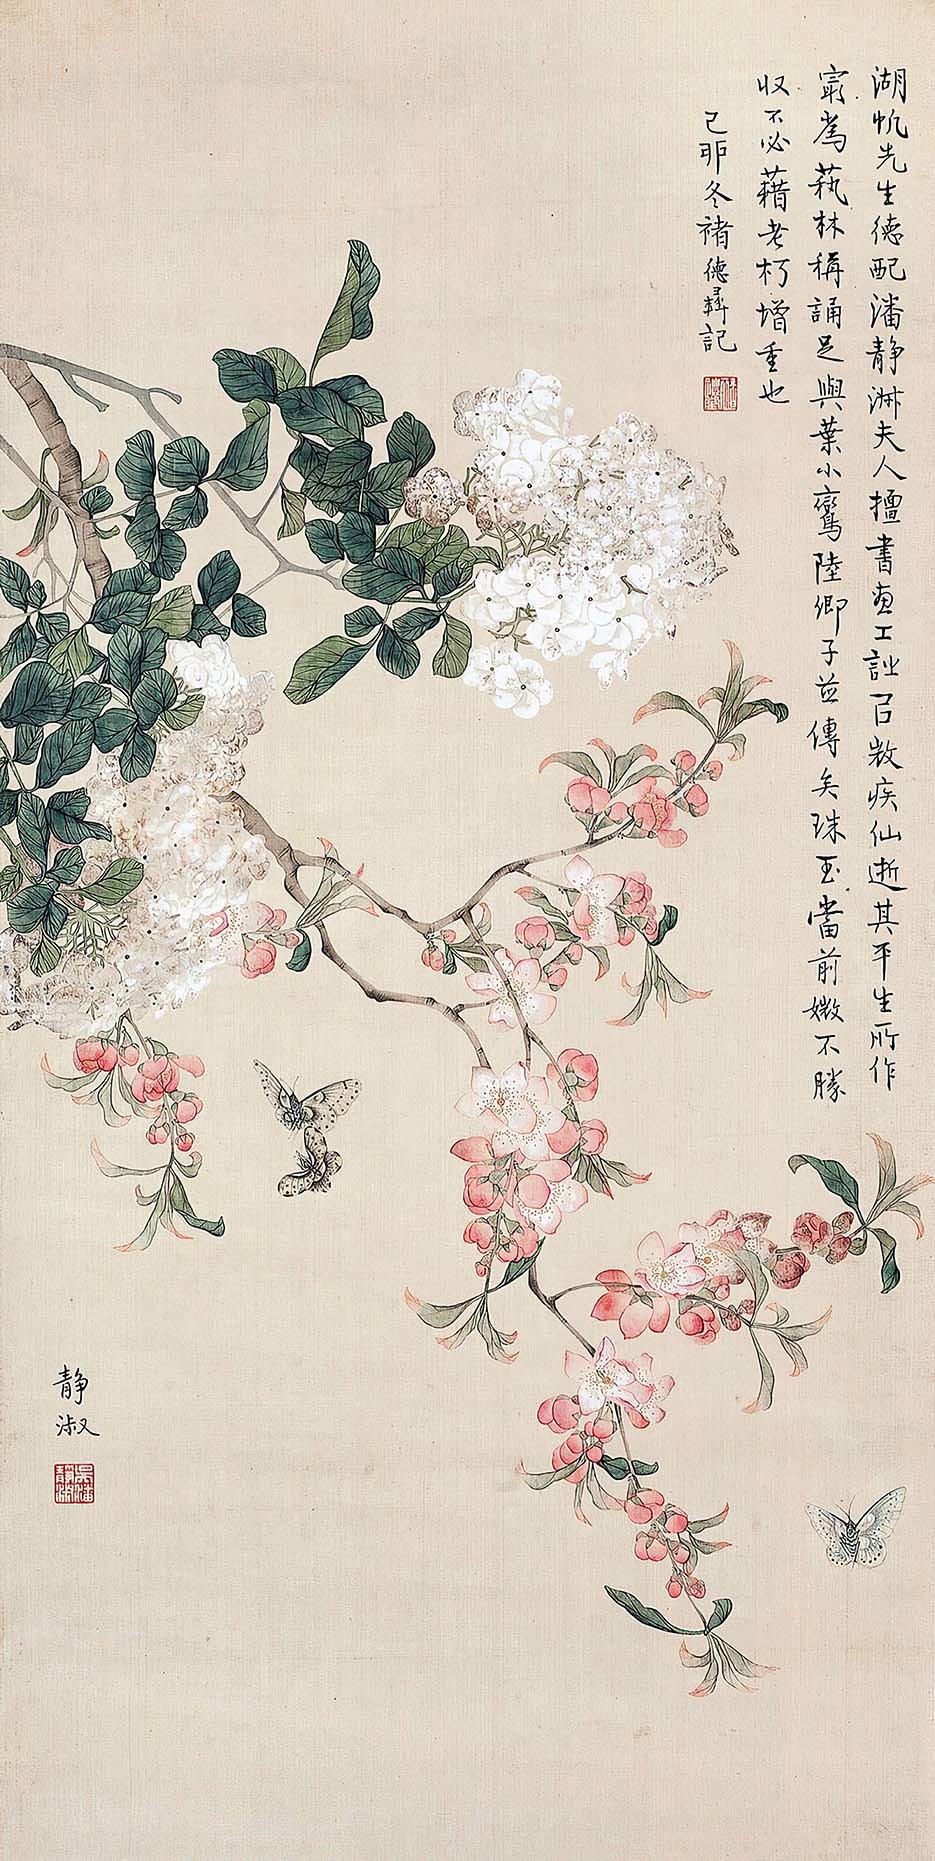 湖帆先生德配潘静淑夫人擅書画工詞己卯疾仙逝其平生所作
寫為藝林稱誦足與葉小鸞陸卿子並傳矣珠玉當前媺不勝
收不必藉老朽增重也
己卯冬褚德彝記
静淑
吳潘静淑